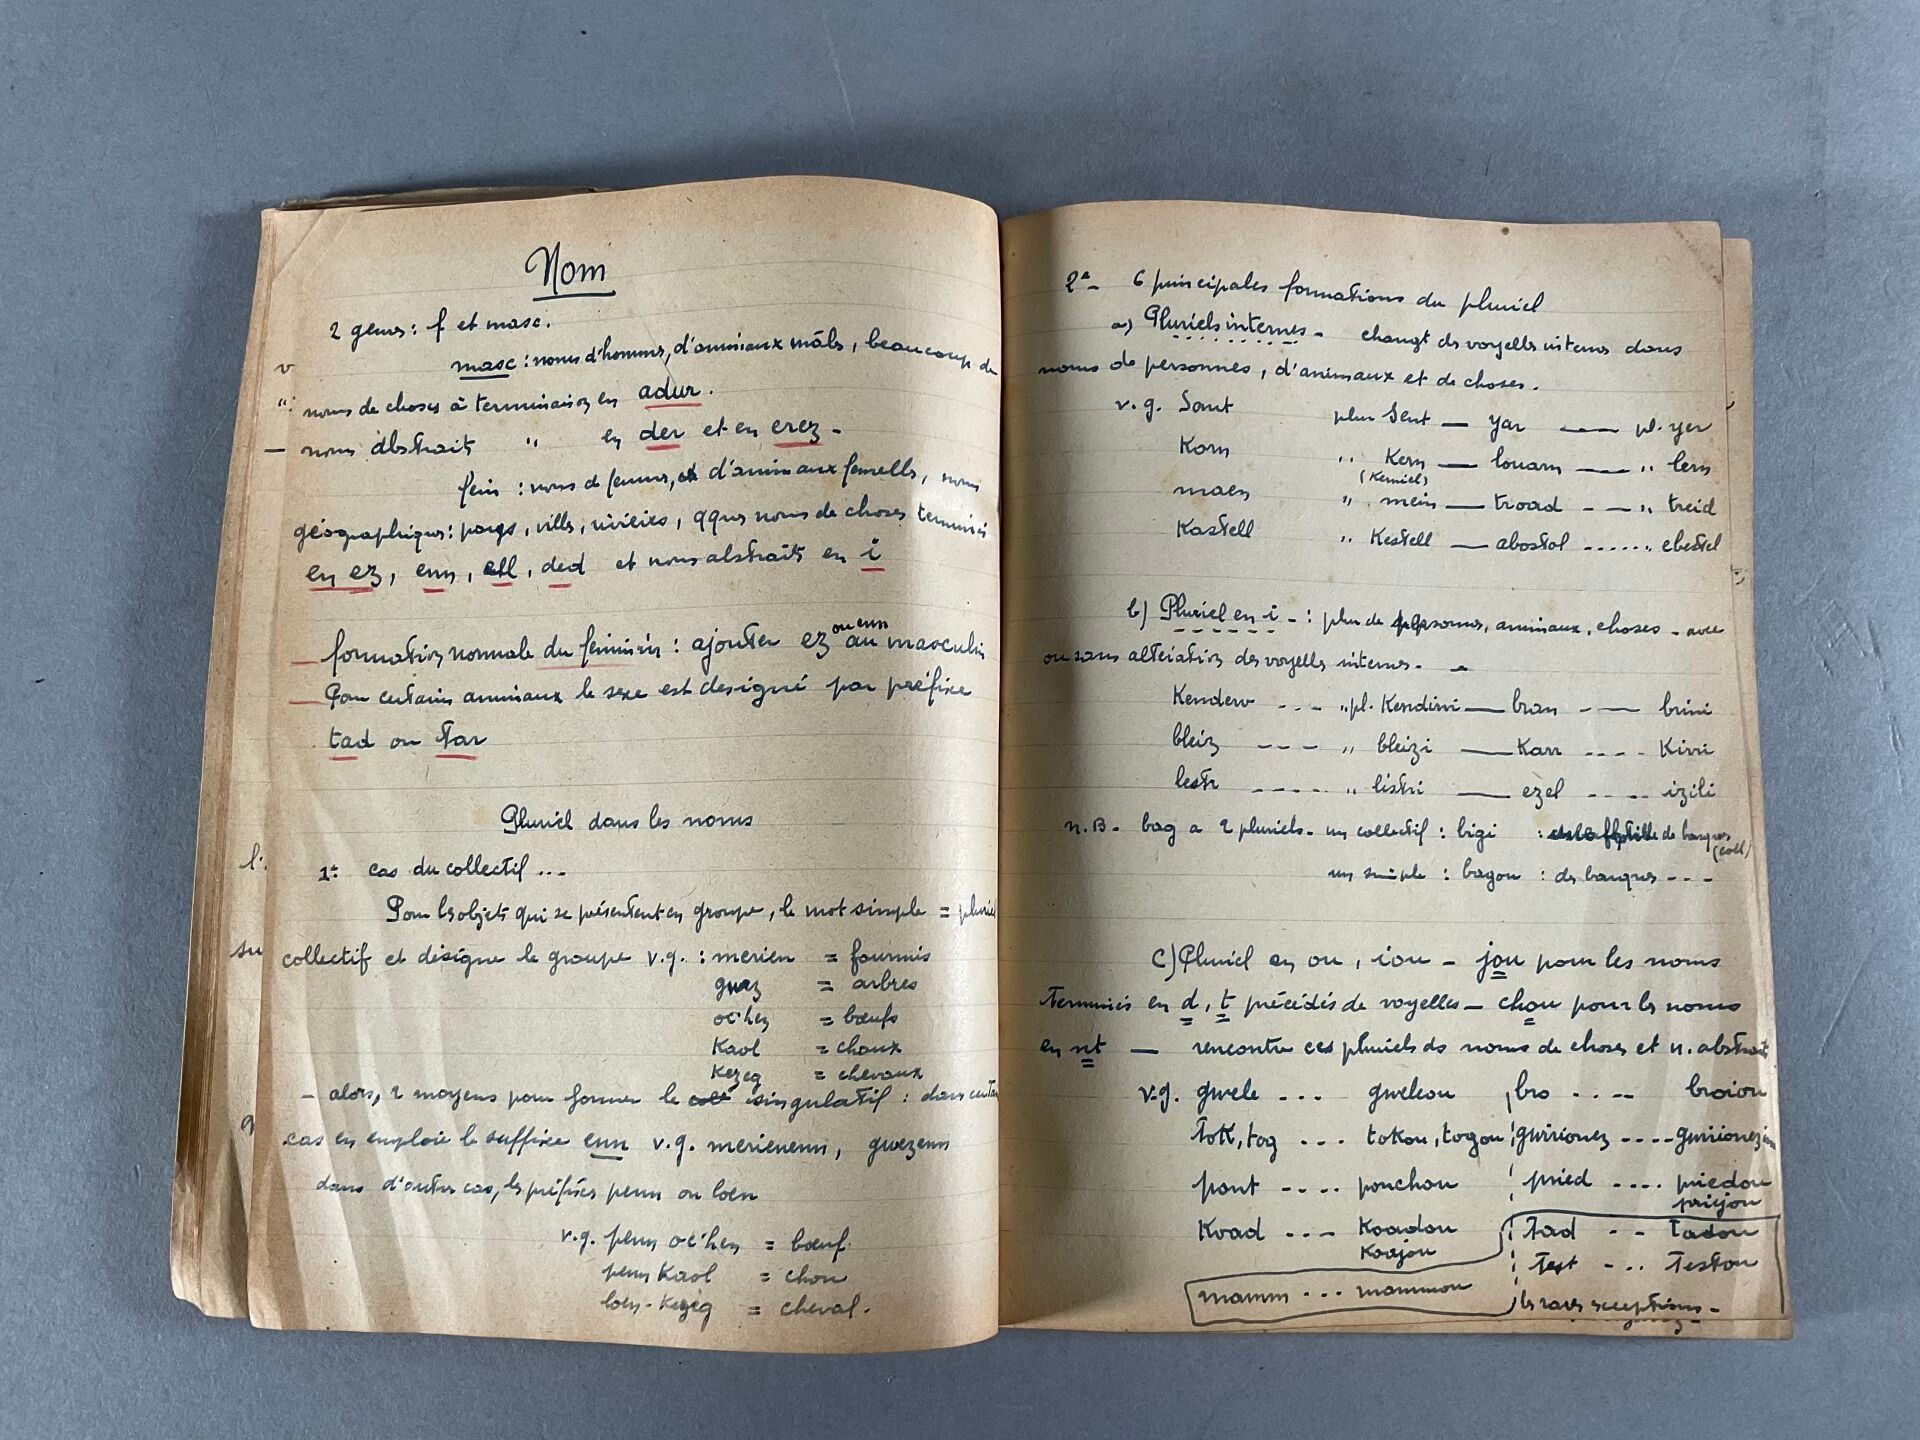 Nom
2 genres : f et masc.
masc : noms d'hommes, d'animaux mâles, beaucoup de
noms de choses à terminaison en adur.
— noms abstrait " en der et en erez -
fém : noms de femmes, d'animaux femelles, noms
géographiques : pays, villes, rivières, qques noms de choses terminés
en ez, enn, ell, ded et noms abstraits en i
— formation normale du féminin : ajouter ez ou enn au masculin
— Pour certains animaux le sexe est designé par préfixe
tad ou tar
Pluriel dans les noms
1º cas du collectif ...
Pour les objets qui se présentent en groupe, le mot simple = pluriel
collectif et désigne le groupe v.g. : merien = fourmis
gwez = arbres
oc'hen = bœufs
Kaol = choux
Kezeg = chevaux
- alors, 2 moyens pour former le singulatif : dans certains
cas on emploie le suffixe enn v.g. merienenn, gwezenn
dans d'autres cas, les préfixes penn ou loen
v.g. penn oc'hen = bœuf
penn Kaol = chou
loen-Kezeg = cheval.
2º- 6 principales formations du pluriel
a) Pluriels internes - changt des voyelles internes dans
noms de personnes, d'animaux et de choses.
v.g. Sant plur Sent — yar — pl. yer
Korn " Kern — louarn — " lern
(Kerniel)
maen " mein — troad - — " treid
Kastell " Kestell — abostol ...... " ebestel
b) Pluriel en i - : plur de personnes, animaux, choses - avec
ou sans altération des voyelles internes. -
Kenderv - - - " pl. Kendirvi — bran - — brini
bleiz - - - " bleizi — Karr - - - - Kirri
lestr - - - - - " listri — ezel - - - - izili
n.B - bag a 2 pluriels - un collectif : bigi : de barques
(coll)
un simple : bagou : des barques - - -
c) Pluriel en ou, iou - jou pour les noms
terminés en d, t précédés de voyelles - chou pour les noms
en nt — rencontre ces pluriels ds noms de choses et n. abstrait
v.g. gwele ... gweleou bro .... broiou
Tok, tog ... tokou, togou gwirionez ....
pont .... ponchou pried .... priedou
priejou
Koad ... Koadou tad .. Tadou
Koajou
Test ... Testou
mamm ... mammou les rares exceptions -